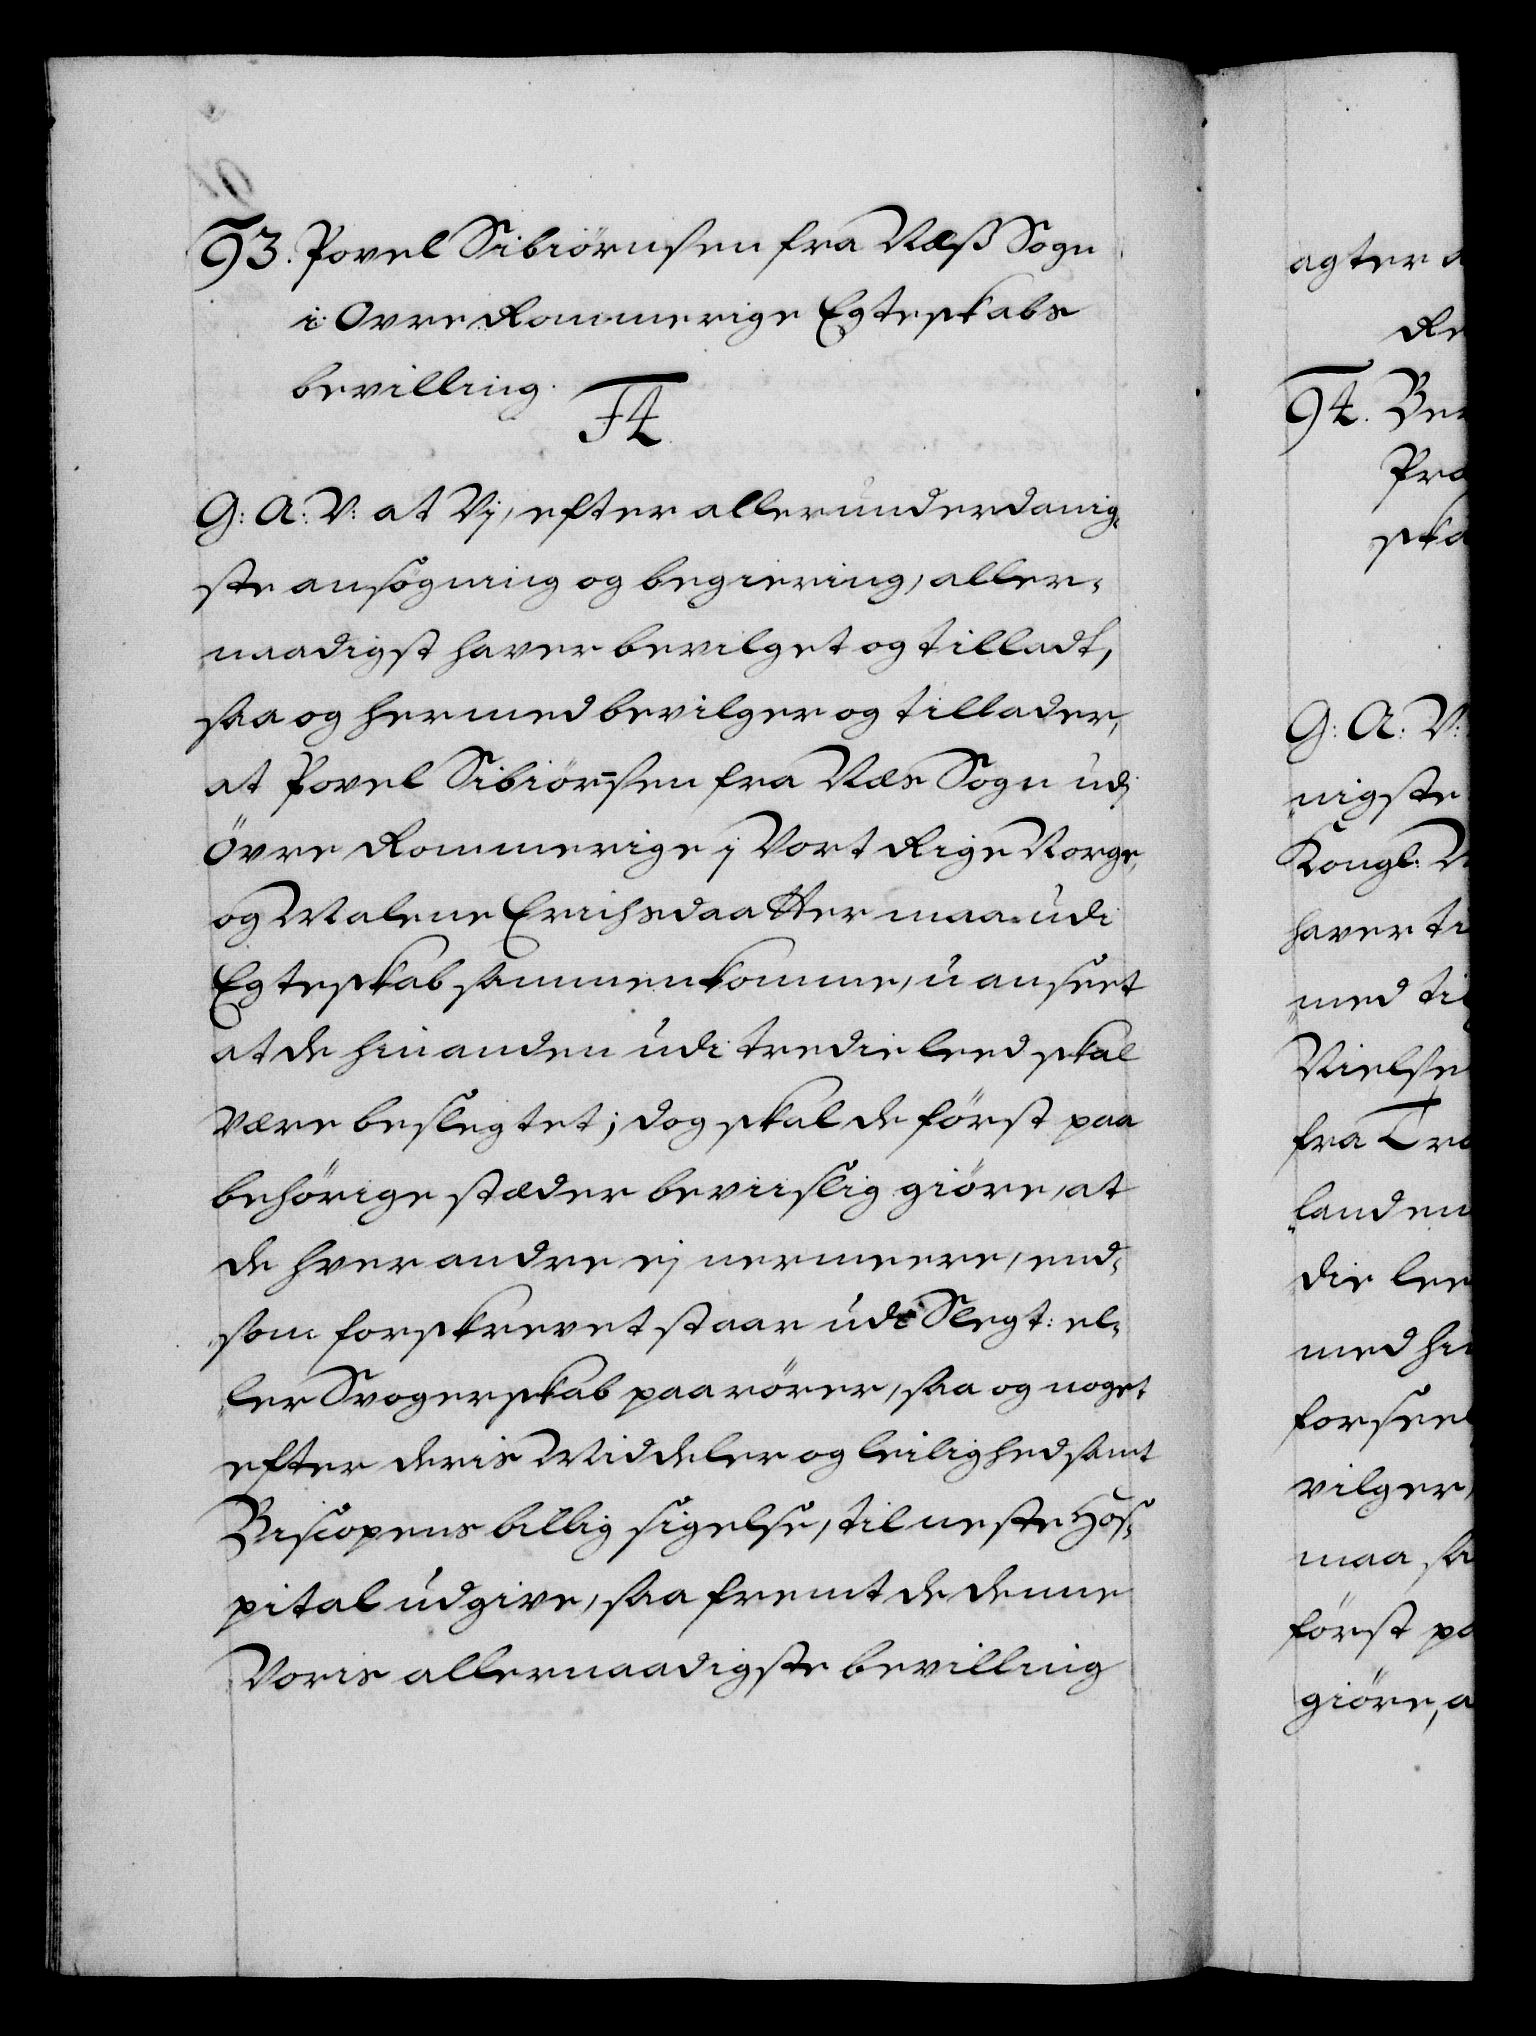 93. Povel Sibiörnsen fra Næss Sogn
i Ovre Rommerige Egteskabs
bevilling.
F4
G: A: V: at Vj, efter allerunderdanig-
ste ansögning og begiering, aller-
naadigst haver bevilget og tilladt,
saa og hermed bevilger og tillader,
at Povel Sibiörnsen fra Næs Sogn udj
Övre Rommerige j Vort Rige Norge,
og Malene Erichsdaatter maa udi
Egteskab sammenkomme, uanseet
at de hinanden udi tredie leed skal
være beslegtet; dog skal de först paa
behörige stæder beviislig giöre, at
de hver andre ej nermeere, end-
som forskrevet staar udi Slegt: el-
ler Svogerskab paarörer, saa og noget
efter deris Middeler og leilighed samt
Biscopens billig sigelse, til neste Hos-
pital udgive, saa fremt de denne
Voris allernaadigste bevilling
agter a
Re
94. Ber
Pro
ska
G: A: V:
nigste
Kongl: M
haver ti
med til
Nielse
fra Tro
landen
die lee
med hi
forseel
vilger,
maa sa
först pa
giöre, a